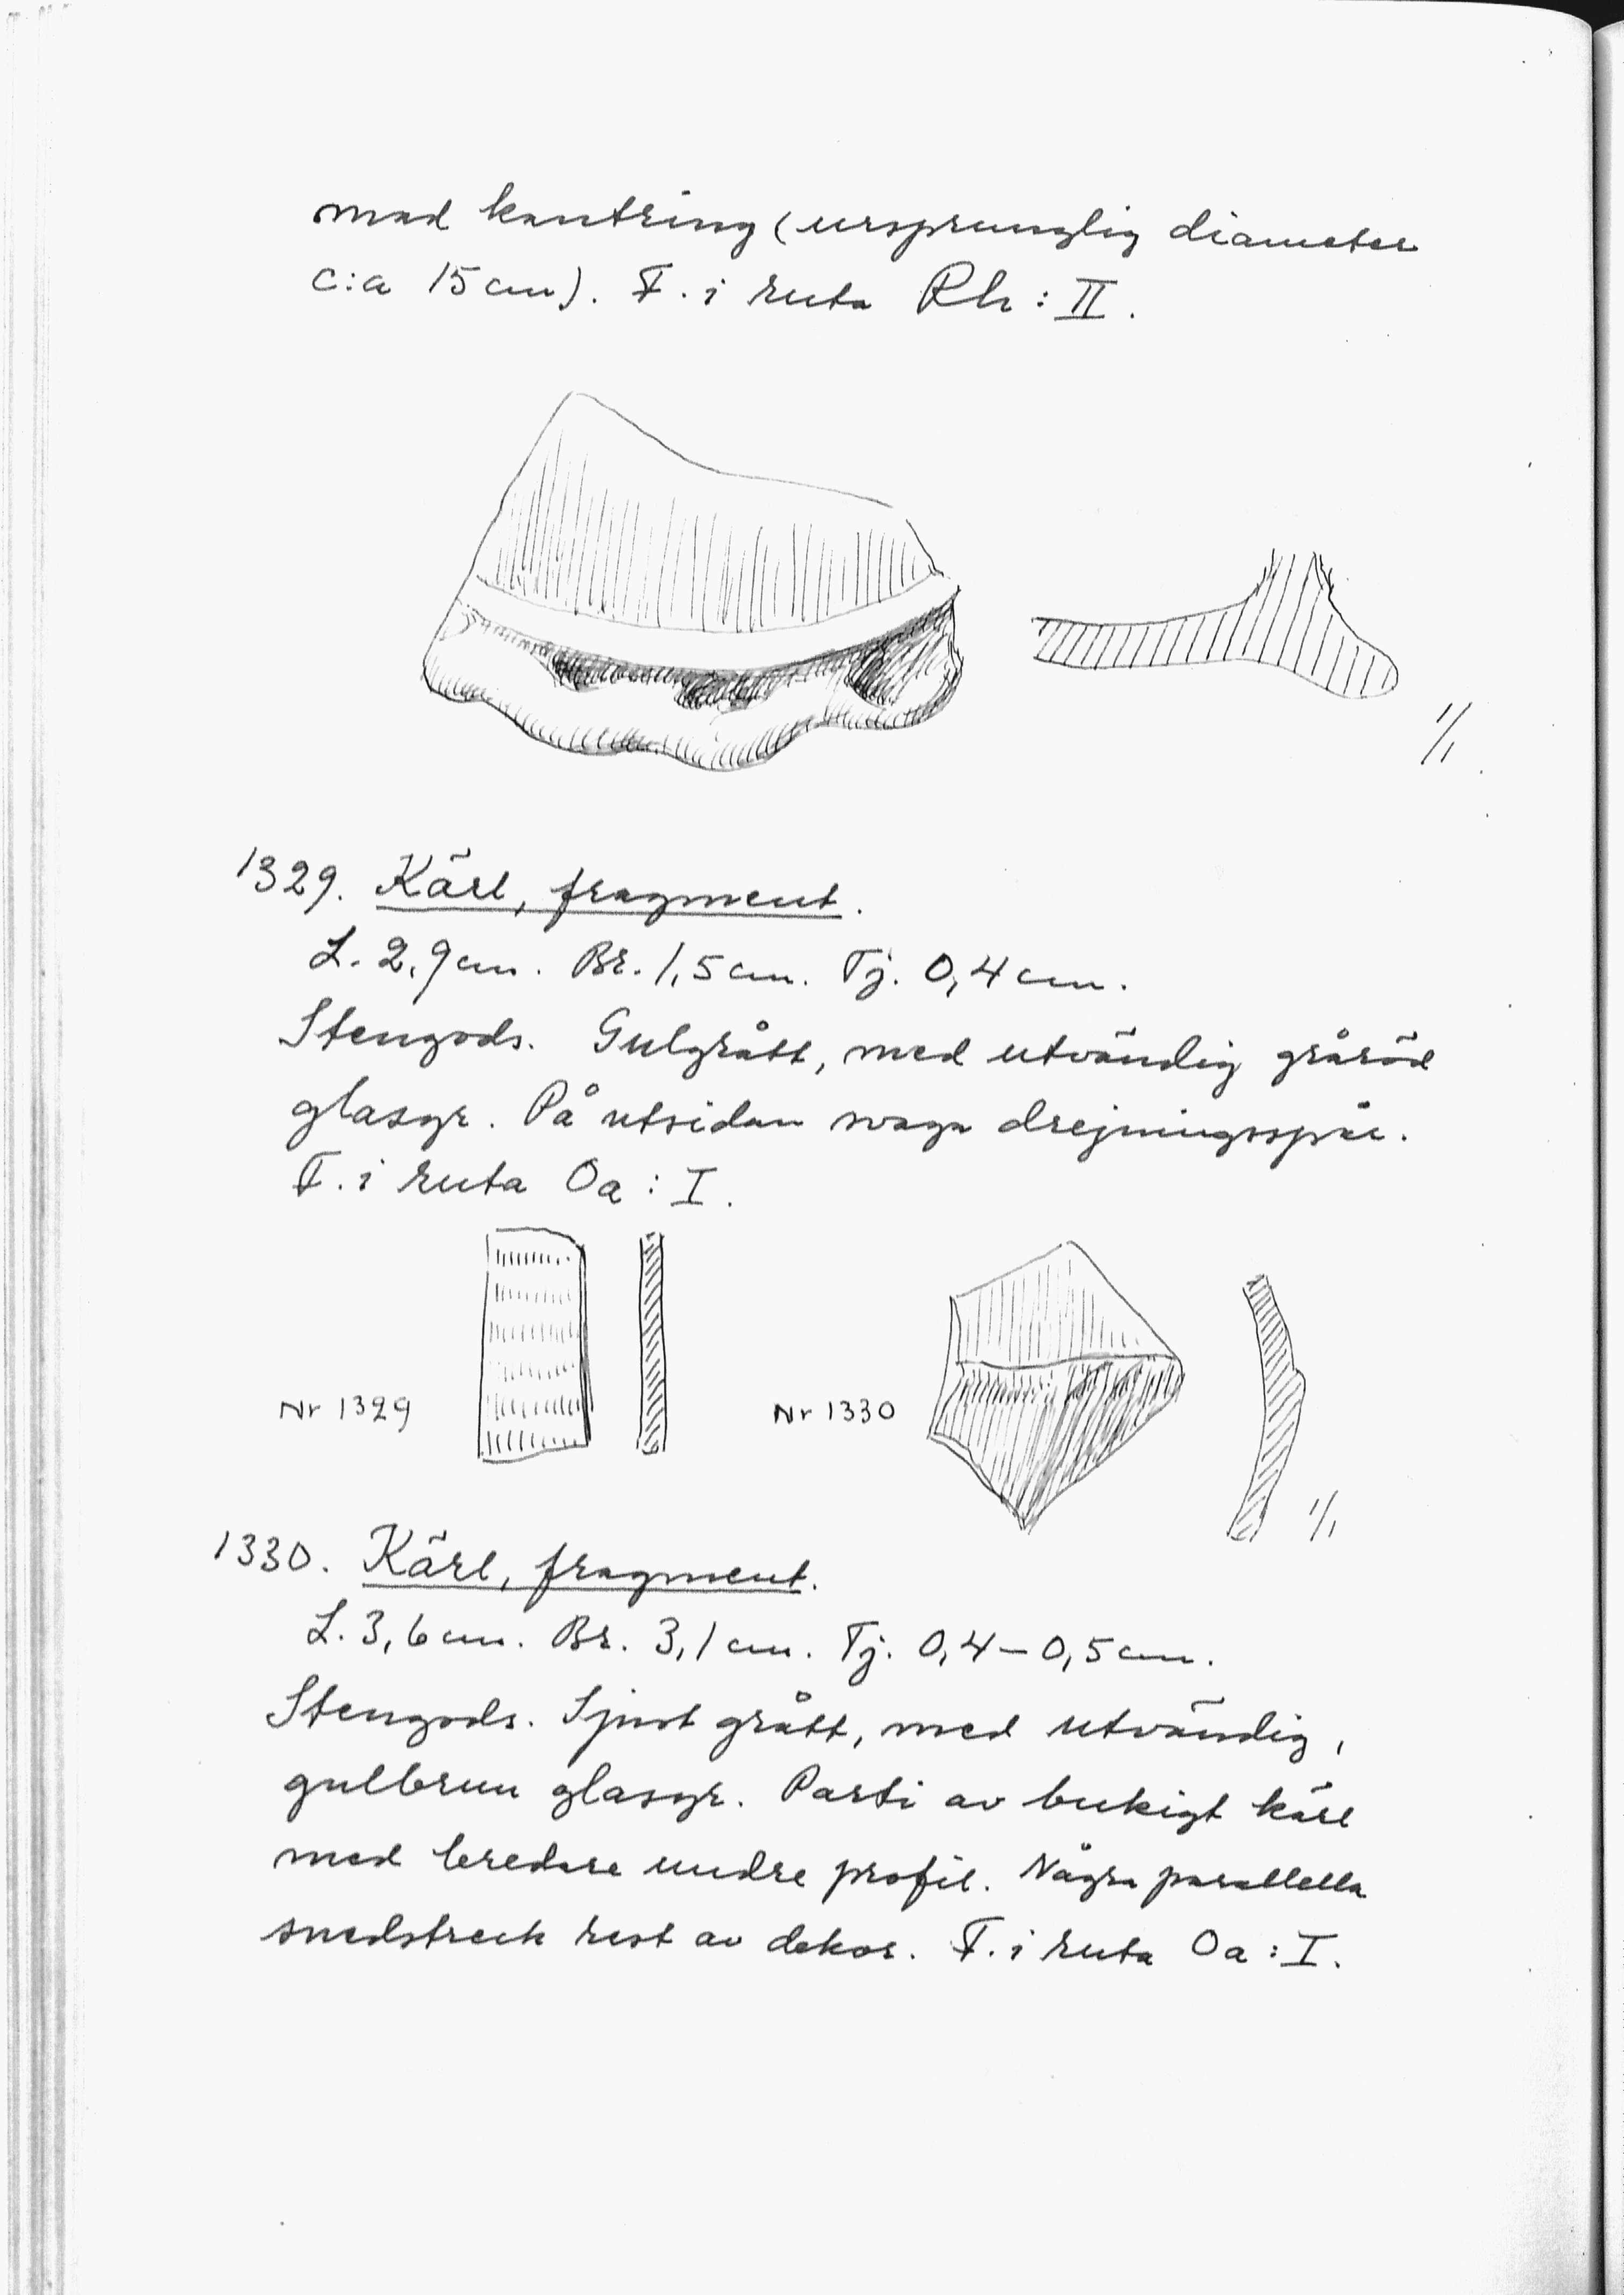 med kantring (ursprunglig diameter
c:a 15 cm). F. i ruta Rh : II.
1/1
1329. Kärl, fragment.
L. 2,9 cm. Br. 1,5 cm. Tj. 0,4 cm.
Stengods. Gulgrått, med utvändig gråröd
glasyr. På utsidan svaga drejningsspår.
F. i ruta Oa : I.
Nr 1329
Nr 1330
1/1
1330. Kärl, fragment.
L. 3,6 cm. Br. 3,1 cm. Tj. 0,4 – 0,5 cm.
Stengods. Ljust grått, med utvändig,
gulbrun glasyr. Parti av bukigt kärl
med bredare undre profil. Några parallella
snedstreck rest av dekor. F. i ruta Oa : I.